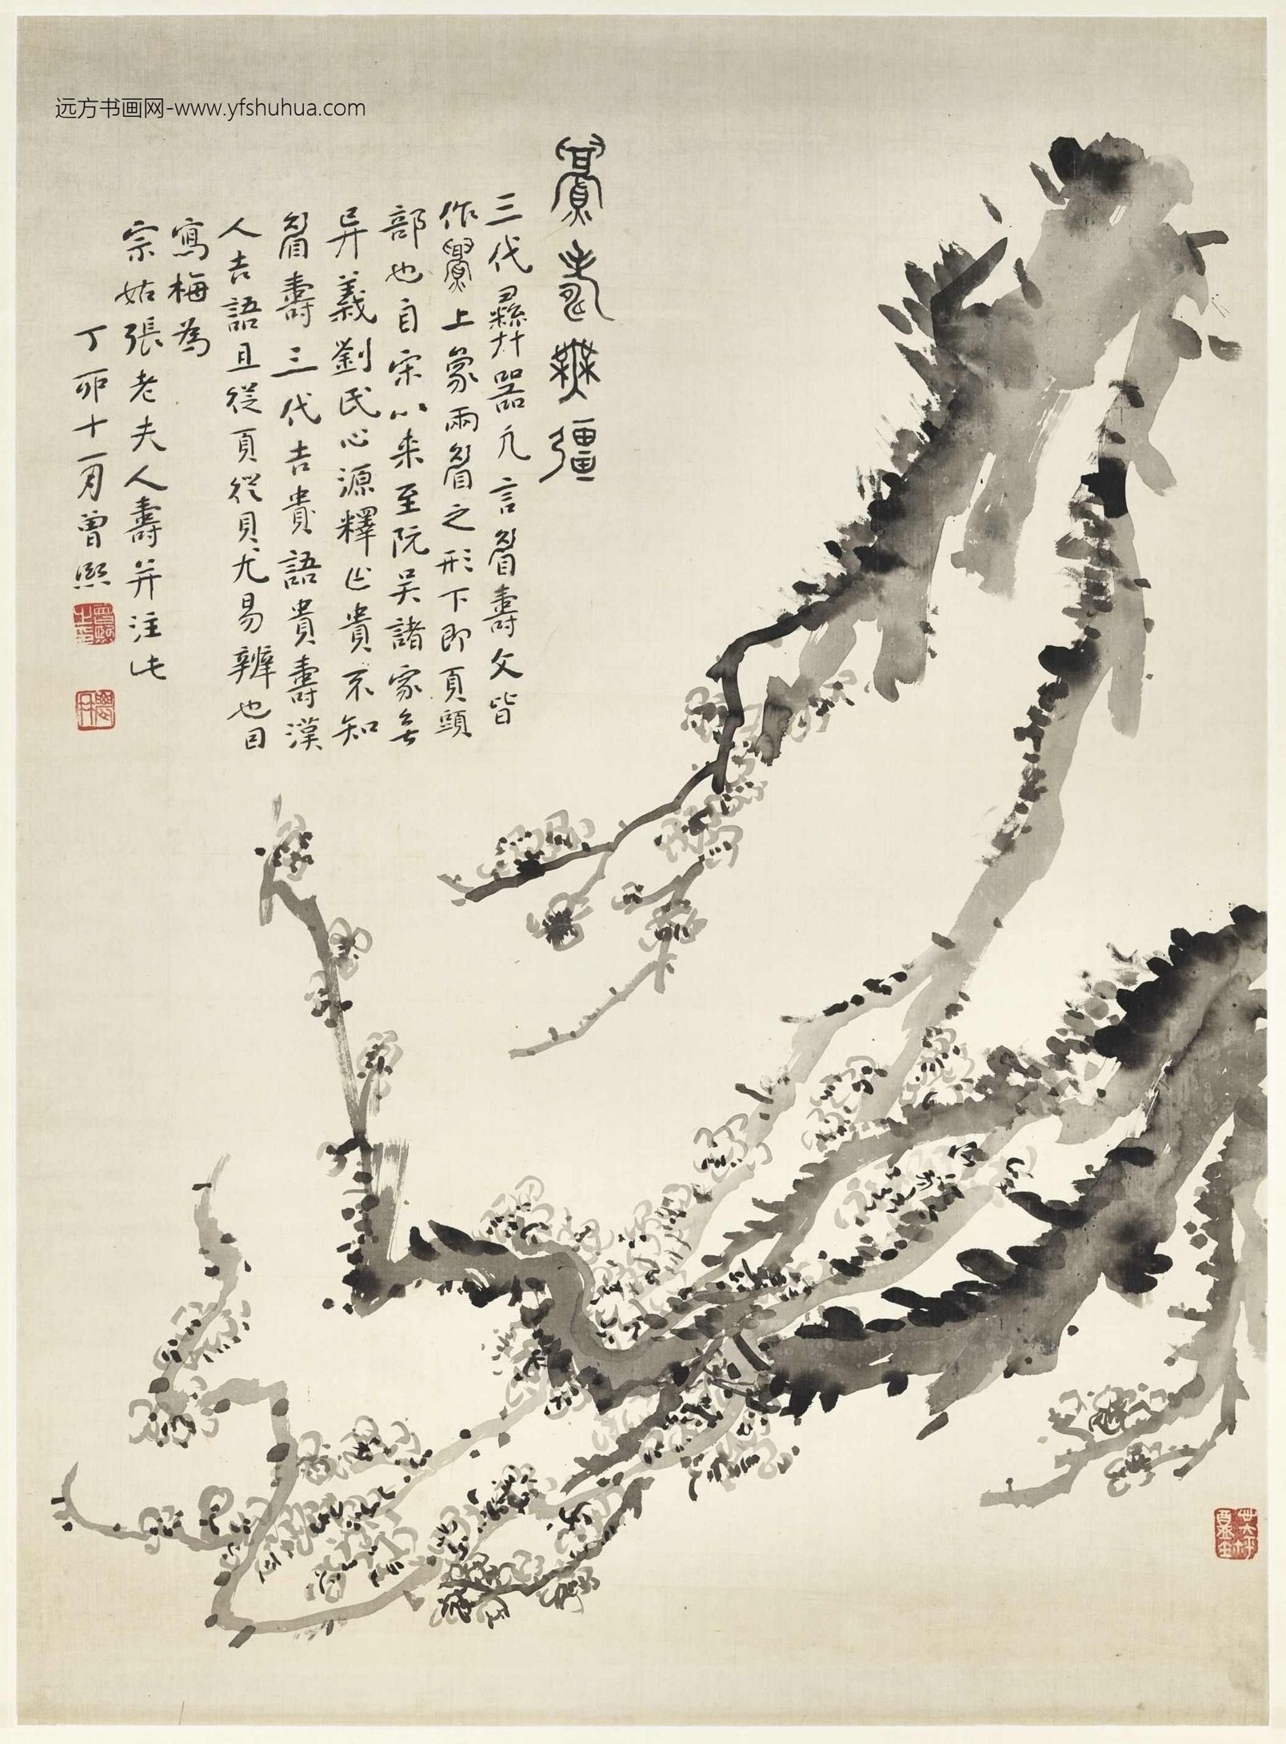 远方书画网-www.yfshuhua.com
眉壽無疆
三代彝器凡言眉壽文皆
作釁上象兩眉之形下即頁頭
部也自宋以來至阮吳諸家無
異義劉氏心源釋作貴不知
眉壽三代吉貴語貴壽漢
人吉語且從頁從貝尤易辨也因
寫梅為
宗姑張老夫人壽并注此
丁卯十一月曾熙